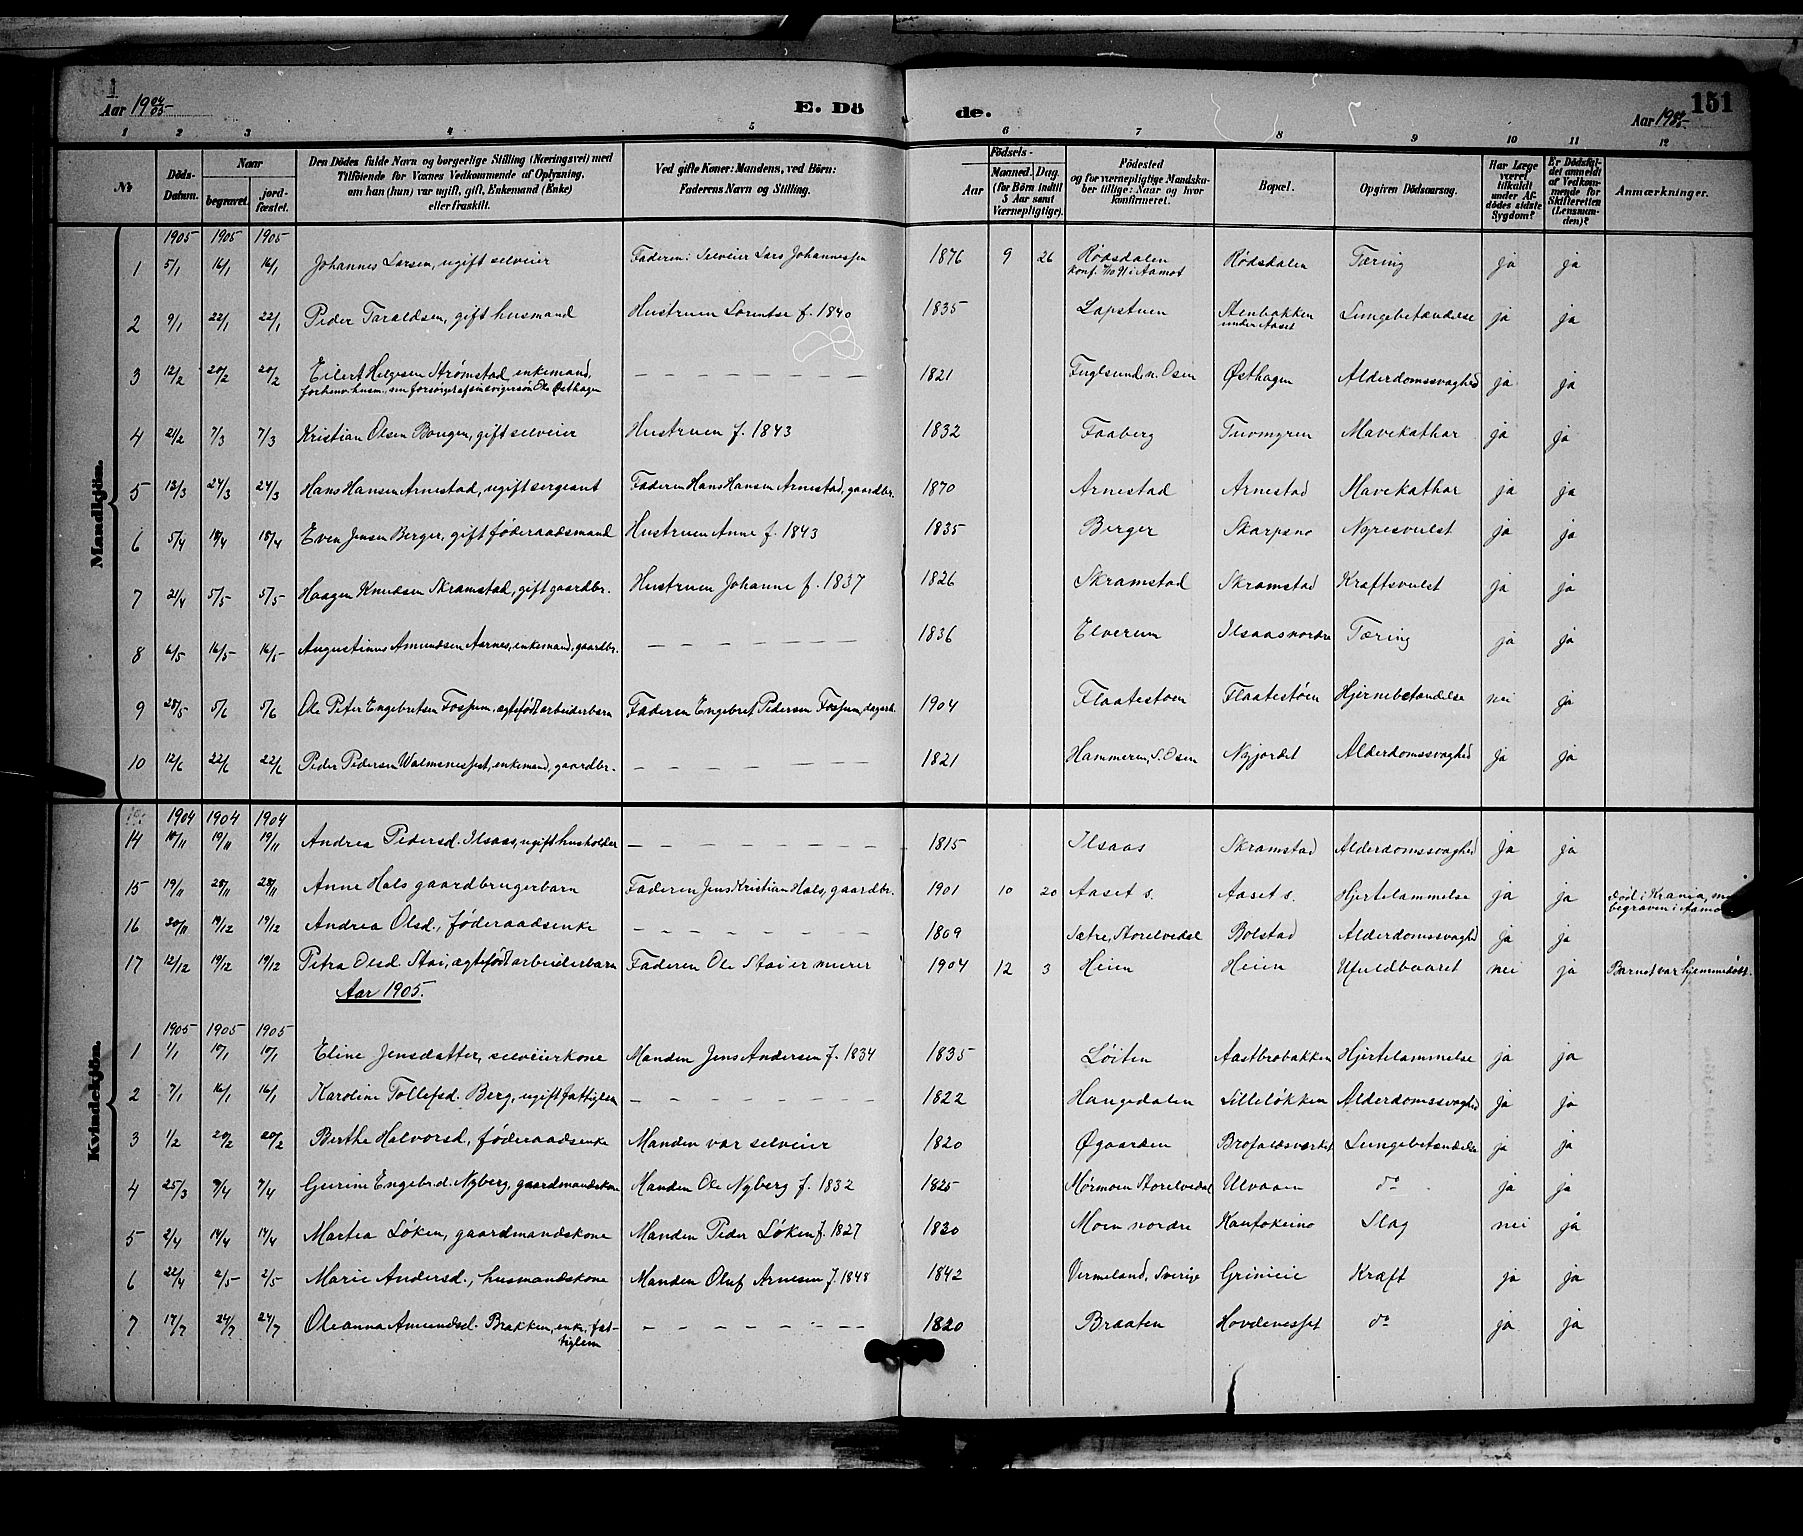 Aar 19 04/05
E. Dö
de.
Aar 19 04/05
151
1 2 3 4 5 6 7 8 9 10 11 12
No
Döds-Datum.
Naar
begravet.
jord-fæstet.
Den Dödes fulde Navn og borgerlige Stilling (Næringsvei) med
Tilföiende for Voxnes Vedkommende af Oplysning,
om han (hun) var ugift, gift, Enkemand (Enke)
eller fraskilt.
Ved gifte Koner: Mandens, ved Börn:
Faderens Navn og Stilling.
Födsels-
Aar
Maaned. Dag.
(for Börn indtil
5 Aar samt
Værnepligtige).
Födested
og for værnepligtige Mandska-
ber tillige: Naar og hvor
konfirmeret.
Bopæl.
Opgiven Dödsaarsag.
Har Læge
været
tilkaldt
under Af-
dödes sidste
Sygdom?
Er Dödsfal-
det anmeldt
af Vedkom-
mende for
Skifteretten
(Lensman-
den)?
Anmærkninger.
Mandkjön.
1905 1905 1905
1 5/1 16/1 16/1 Johannes Larsen, ugift selveier Faderen: Selveier Lars Johannessen 1876 9 26 Rødsdalen Rødsdalen Tæring ja ja
konf. 7/10 91 i Aamot
2 9/1 22/1 22/1 Peder Taraldsen, gift husmand Hustruen Lorentse f. 1840 1835 Lapstuen Stenbakken Lungebetændelse ja ja
under Aaset
3 12/2 20/2 20/2 Eilert Helgesen Strømstad, enkemand, — — — 1821 Fuglsund, n. Osen Østhagen Alderdomssvaghed ja ja
forhenv. husm., Ole Østhagen
4 21/2 7/3 7/3 Kristian Olsen Bougen, gift selveier Hustruen f. 1843 1832 Faaberg Tuomyren Mavekathar ja ja
5 13/3 24/3 24/3 Hans Hansen Arnestad, ugift sergeant Faderen Hans Hansen Arnestad, gaardbr. 1870 Arnestad Arnestad Mavekathar ja ja
6 5/4 18/4 18/4 Even Jensen Berger, gift føderaadsmand Hustruen Anne f. 1843 1835 Berger Skarpsno Nyresvulst ja ja
7 21/4 5/5 5/5 Haagen Knudsen Skramstad, gift gaardbr. Hustruen Johanne f. 1837 1826 Skramstad Skramstad Kraftsvulst ja ja
8 6/5 16/5 16/5 Augustinus Amundsen Aarnes, enkemand, gaardbr. — — — 1836 Elverum Ilsaas nordre Tæring ja ja
9 28/5 5/6 5/6 Ole Peter Engebretsen Fossum, ægtefødt arbeiderbarn Faderen Engebret Pedersen Fossum, dagarb. 1904 Flaatestøen Flaatestøen Hjernebetændelse nei ja
10 12/6 22/6 22/6 Peder Pedersen Valmsnesset, enkemand, gaardbr. — — — 1821 Hammeren, S. Osen Nyjordet Alderdomssvaghed ja ja
Kvindekjön.
1904 1904 1904
14 10/11 19/11 19/11 Andrea Pedersd. Ilsaas, ugift husholder — — — 1815 Ilsaas Skramstad Alderdomssvaghed ja ja
15 19/11 28/11 28/11 Anne Hals gaardbrugerbarn Faderen Jens Kristian Hals, gaardbr. 1901 10 20 Aaset s. Aaset s. Hjertelammelse ja ja død i Krania, men
begraven i Aamot
16 30/11 19/12 19/12 Andrea Olsd., føderaadsenke — — — 1809 Sætre, Storelvedal Bolstad Alderdomssvaghed ja ja
17 12/12 19/12 19/12 Petra Olsd. Stai, ægtefødt arbeiderbarn Faderen Ole Stai er murer 1904 12 3 Heien Heien Ufuldbaaret nei ja Barnet var hjemmedøbt.
Aar 1905.
1905 1905 1905
1 1/1 10/1 10/1 Eline Jensdatter, selveierkone Manden Jens Andersen f. 1834 1835 Løiten Aastbrobakken Hjertelammelse ja ja
2 7/1 16/1 16/1 Karoline Tollefsd. Berg, ugift fattiglem — — — 1822 Haugedalen Lilleløkken Alderdomssvaghed ja ja
3 1/2 20/2 20/2 Berthe Halvorsd., føderaadsenke Manden var selveier 1820 Øgaarden Brofaldsværket Lungebetændelse ja ja
4 25/3 7/4 7/4 Gurine Engebr.d. Nyberg, gaardmandskone Manden Ole Nyberg f. 1832 1825 Mørmoen Storelvedal Ulvaaen do ja ja
5 2/4 14/4 14/4 Martea Løken, gaardmandskone Manden Peder Løken f. 1827 1830 Moen nordre Kautokeino Slag nei ja
6 22/4 2/5 2/5 Marie Andersd., husmandskone Manden Oluf Arnesen f. 1848 1842 Vermeland, Sverige Grinieie Kræft ja ja
7 17/7 24/7 24/7 Oleanna Amundsd. Bakken, enke, fat-
tiglem — — — 1820 Braaten Hovdenesset do ja ja